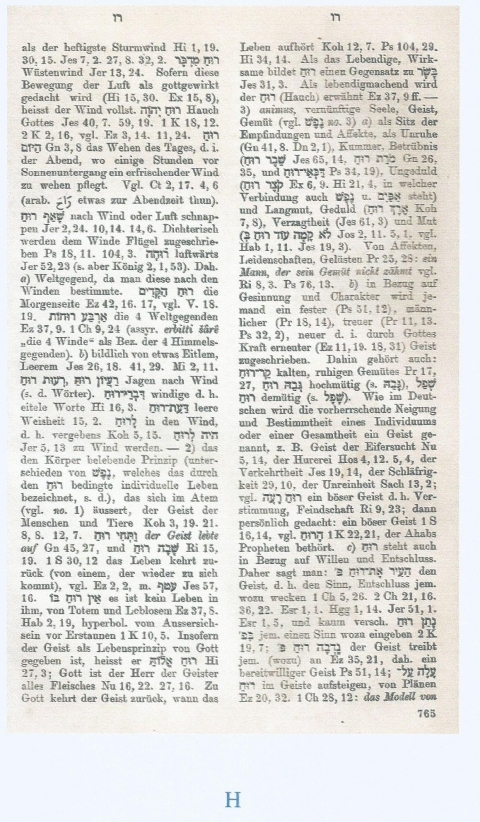 רו
רו
als der heftigste Sturmwind Hi 1, 19.
30, 15. Jes 7, 2. 27, 8. 32, 2. רוּחַ מִדְבָּר
Wüstenwind Jer 13, 24. Sofern diese
Bewegung der Luft als gottgewirkt
gedacht wird (Hi 15, 30. Ex 15, 8),
heisst der Wind vollst. רוּחַ יְהוָֹה Hauch
Gottes Jes 40, 7. 59, 19. 1 K 18, 12.
2 K 2, 16, vgl. Ez 3, 14. 11, 24. רוּחַ
הַיּוֹם Gn 3, 8 das Wehen des Tages, d. i.
der Abend, wo einige Stunden vor
Sonnenuntergang ein erfrischender Wind
zu wehen pflegt. Vgl. Ct 2, 17. 4, 6
(arab. راح etwas zur Abendzeit thun).
שָׁאַף רוּחַ nach Wind oder Luft schnap-
pen Jer 2, 24. 10, 14. 14, 6. Dichterisch
werden dem Winde Flügel zugeschrie-
ben Ps 18, 11. 104, 3. לָרוּחַ luftwärts
Jer 52, 23 (s. aber König 2, 1, 53). Dah.
a) Weltgegend, da man diese nach den
Winden bestimmte. רוּחַ הַקָּדִים die
Morgenseite Ez 42, 16. 17, vgl. V. 18.
19. אַרְבַּע רוּחוֹת die 4 Weltgegenden
Ez 37, 9. 1 Ch 9, 24 (assyr. erbitti šârê
„die 4 Winde“ als Bez. der 4 Himmels-
gegenden). b) bildlich von etwas Eitlem,
Leerem Jes 26, 18. 41, 29. Mi 2, 11.
רַעְיוֹן רוּחַ, רְעוּת רוּחַ Jagen nach Wind
(s. d. Wörter). דִּבְרֵי־רוּחַ windige d. h.
eitele Worte Hi 16, 3. דַּעַת־רוּחַ leere
Weisheit 15, 2. לָרוּחַ in den Wind,
d. h. vergebens Koh 5, 15. הָיָה לְרוּחַ
Jer 5, 13 zu Wind werden. — 2) das
den Körper belebende Prinzip (unter-
schieden von נֶפֶשׁ, welches das durch
den רוּחַ bedingte individuelle Leben
bezeichnet, s. d.), das sich im Atem
(vgl. no. 1) äussert, der Geist der
Menschen und Tiere Koh 3, 19. 21.
8, 8. 12, 7. וַתְּחִי רוּחַ der Geist lebte
auf Gn 45, 27, und שָׁבָה רוּחַ Ri 15,
19. 1 S 30, 12 das Leben kehrt zu-
rück (von einem, der wieder zu sich
kommt), vgl. Ez 2, 2, m. עטף Jes 57,
16. אֵין רוּחַ בּוֹ es ist kein Leben in
ihm, von Totem und Leblosem Ez 37, 8.
Hab 2, 19, hyperbol. vom Aussersich-
sein vor Erstaunen 1 K 10, 5. Insofern
der Geist als Lebensprinzip von Gott
gegeben ist, heisst er רוּחַ אֱלוֹהַּ Hi
27, 3; Gott ist der Herr der Geister
alles Fleisches Nu 16, 22. 27, 16. Zu
Gott kehrt der Geist zurück, wann das
Leben aufhört Koh 12, 7. Ps 104, 29.
Hi 34, 14. Als das Lebendige, Wirk-
same bildet רוּחַ einen Gegensatz zu בָּשָׂר
Jes 31, 3. Als lebendigmachend wird
der רוּחַ (Hauch) erwähnt Ez 37, 9 ff. —
3) animus, vernünftige Seele, Geist,
Gemüt (vgl. נֶפֶשׁ no. 3) a) als Sitz der
Empfindungen und Affekte, als Unruhe
(Gn 41, 8. Dn 2, 1), Kummer, Betrübnis
(שֶׁבֶר רוּחַ Jes 65, 14, מֹרַת רוּחַ Gn 26,
35, und דַּכְּאֵי־רוּחַ Ps 34, 19), Ungeduld
(קֹצֶר רוּחַ Ex 6, 9. Hi 21, 4, in welcher
Verbindung auch נֶפֶשׁ u. אַפַּיִם steht)
und Langmut, Geduld (אֶרֶךְ רוּחַ Koh
7, 8), Verzagtheit (Jes 61, 3) und Mut
(לֹא קָמָה עוֹד רוּחַ בְּ Jos 2, 11. 5, 1, vgl.
Hab 1, 11. Jes 19, 3). Von Affekten,
Leidenschaften, Gelüsten Pr 25, 28: ein
Mann, der sein Gemüt nicht zähmt vgl.
Ri 8, 3. Ps 76, 13. b) in Bezug auf
Gesinnung und Charakter wird je-
mand ein fester (Ps 51, 12), männ-
licher (Pr 18, 14), treuer (Pr 11, 13.
Ps 32, 2), neuer d. i. durch Gottes
Kraft erneuter (Ez 11, 19. 18, 31) Geist
zugeschrieben. Dahin gehört auch:
קַר־רוּחַ kalten, ruhigen Gemütes Pr 17,
27, גְּבַהּ רוּחַ hochmütig (s. גָּבֵהַּ), שְׁפַל
רוּחַ demütig (s. שָׁפָל). Wie im Deut-
schen wird die vorherrschende Neigung
und Bestimmtheit eines Individuums
oder einer Gesamtheit ein Geist ge-
nannt, z. B. Geist der Eifersucht Nu
5, 14, der Hurerei Hos 4, 12. 5, 4, der
Verkehrtheit Jes 19, 14, der Schläfrig-
keit 29, 10, der Unreinheit Sach 13, 2;
vgl. רוּחַ רָעָה ein böser Geist d. h. Ver-
stimmung, Feindschaft Ri 9, 23; dann
persönlich gedacht: ein böser Geist 1 S
16, 14, vgl. הָרוּחַ 1 K 22, 21, der Ahabs
Propheten bethört. c) רוּחַ steht auch
in Bezug auf Willen und Entschluss.
Daher sagt man: הֵעִיר אֶת־רוּחַ פּ׳ den
Geist, d. h. den Sinn, Entschluss jem.
wozu wecken 1 Ch 5, 26. 2 Ch 21, 16.
36, 22. Esr 1, 1. Hgg 1, 14. Jer 51, 1.
Esr 1, 5, und kaum versch. נָתַן רוּחַ
בְּפ׳ jem. einen Sinn wozu eingeben 2 K
19, 7; נָדְבָה רוּחַ פּ׳ der Geist treibt
jem. (wozu) an Ex 35, 21, dah. ein
bereitwilliger Geist Ps 51, 14; עָלָה עַל־
רוּחַ im Geiste aufsteigen, von Plänen
Ez 20, 32. 1 Ch 28, 12: das Modell von
765
H